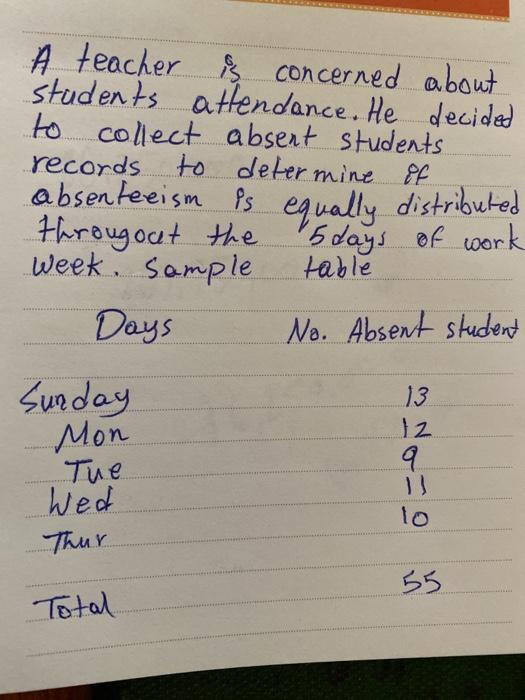 A teacher is concerned about
students attendance. He decided
to collect absent students
records to determine if
absenteeism is equally distributed
througout the 5 days of work
week. Sample table
Days No. Absent student
Sunday 13
Mon 12
Tue 9
Wed 11
Thur 10
Total 55